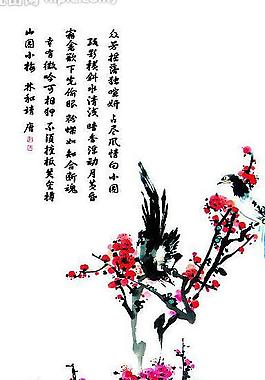 众芳摇落独喧妍 占尽风情向小园
疏影横斜水清浅 暗香浮动月黄昏
霜禽欲下先偷眼 粉蝶如知合断魂
幸有微吟可相狎 不须檀板共金樽
山园小梅 林和靖 唐